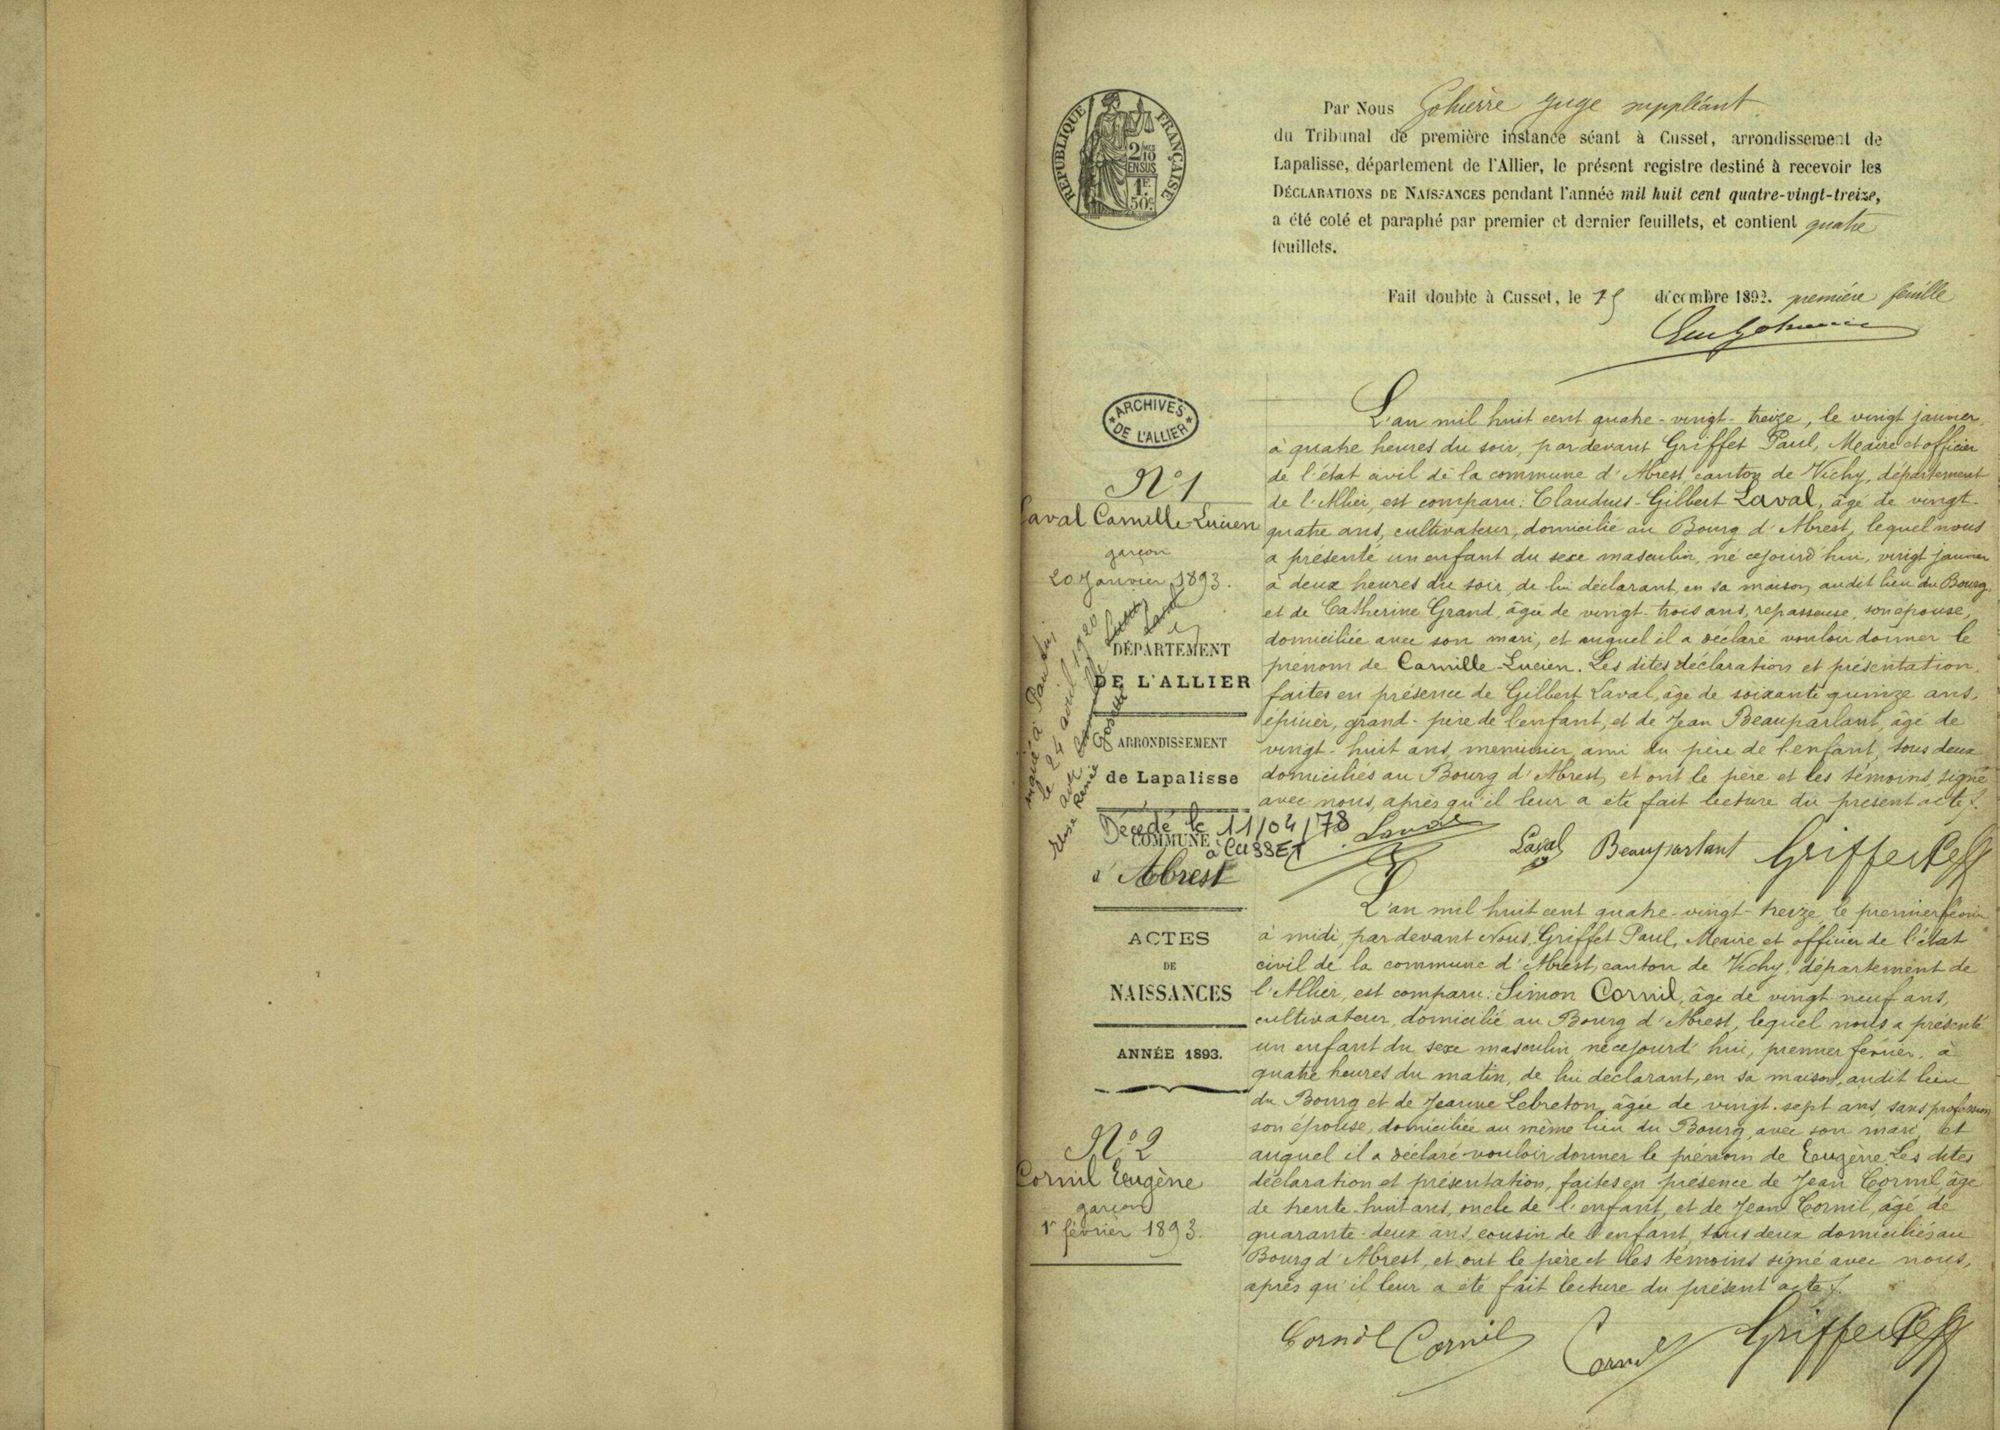 Par Nous Gohierre Juge suppléant
du Tribunal de première instance séant à Cusset, arrondissement de
Lapalisse, département de l'Allier, le présent registre destiné à recevoir les
DÉCLARATIONS DE NAISSANCES pendant l'année mil huit cent quatre-vingt-treize,
a été coté et paraphé par premier et dernier feuillets, et contient quatre
feuillets.
Fait double à Cusset, le 15 décembre 1892. première feuille
RÉPUBLIQUE FRANÇAISE
2/10 EN SUS
1F. 50c.
ARCHIVES DE L'ALLIER
N° 1
Laval Camille-Lucien
garçon
20 Janvier 1893.
DÉPARTEMENT
DE L'ALLIER
ARRONDISSEMENT
de Lapalisse
COMMUNE
d'Abrest
ACTES
DE
NAISSANCES
ANNÉE 1893.
le 24 avril 1920
avec
Décédé le 11/04/78
à CUSSET
L'an mil huit cent quatre-vingt-treize, le vingt janvier,
à quatre heures du soir, pardevant Griffet Paul, Maire et officier
de l'état civil de la commune d'Abrest, canton de Vichy, département
de l'Allier, est comparu: Claudius-Gilbert Laval, âgé de vingt-
quatre ans, cultivateur, domicilié au Bourg d'Abrest, lequel nous
a présenté un enfant du sexe masculin, né cejourd'hui, vingt janvier
à deux heures du soir, de lui déclarant, en sa maison, audit lieu du Bourg,
et de Catherine Grand, âgée de vingt-trois ans, repasseuse, son épouse,
domiciliée avec son mari, et auquel il a déclaré vouloir donner le
prénom de Camille-Lucien. Les dites déclaration et présentation,
faites en présence de Gilbert Laval, âgé de soixante quinze ans,
épicier, grand-père de l'enfant, et de Jean Beauparlant, âgé de
vingt-huit ans, menuisier, ami du père de l'enfant, tous deux
domiciliés au Bourg d'Abrest, et ont le père et les témoins, signé
avec nous, après qu'il leur a été fait lecture du présent acte.
Laval Laval Beauparlant Griffet P
N° 2
Cornil Eugène
garçon
1r février 1893.
L'an mil huit cent quatre-vingt-treize, le premier février
à midi, pardevant Nous, Griffet Paul, Maire et officier de l'état
civil de la commune d'Abrest, canton de Vichy, département de
l'Allier, est comparu: Simon Cornil, âgé de vingt neuf ans,
cultivateur, domicilié au Bourg d'Abrest, lequel nous a présenté
un enfant du sexe masculin, né cejourd'hui, premier février, à
quatre heures du matin, de lui déclarant, en sa maison, audit lieu
du Bourg et de Jeanne Lebreton, âgée de vingt-sept ans, sans profession
son épouse, domiciliée au même lieu du Bourg, avec son mari, et
auquel il a déclaré vouloir donner le prénom de Eugène. Les dites
déclaration et présentation, faites en présence de Jean Cornil, âgé
de trente-huit ans, oncle de l'enfant, et de Jean Cornil, âgé de
quarante-deux ans, cousin de l'enfant, tous deux domiciliés au
Bourg d'Abrest, et ont le père et les témoins signé avec nous,
après qu'il leur a été fait lecture du présent acte.
Cornil Cornil Cornil Griffet P